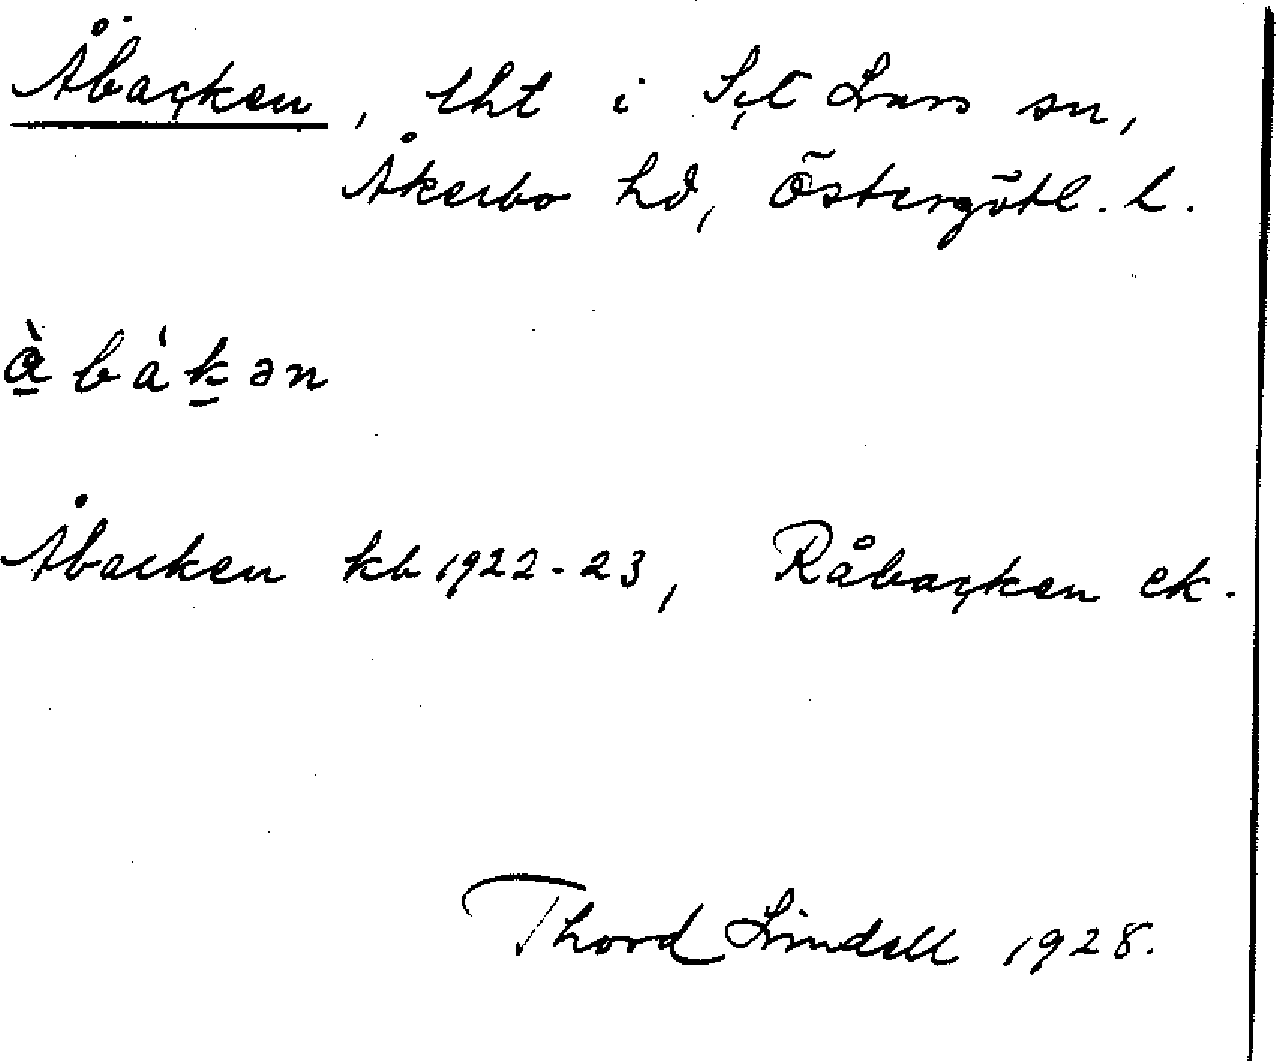 Åbacken, lht i S:t Lars sn,
Åkerbo hd, Östergötl. l.
å̀ b á k̲ ə n
Åbacken kb 1922-23, Råbacken ek.
Thord Lindell 1928.